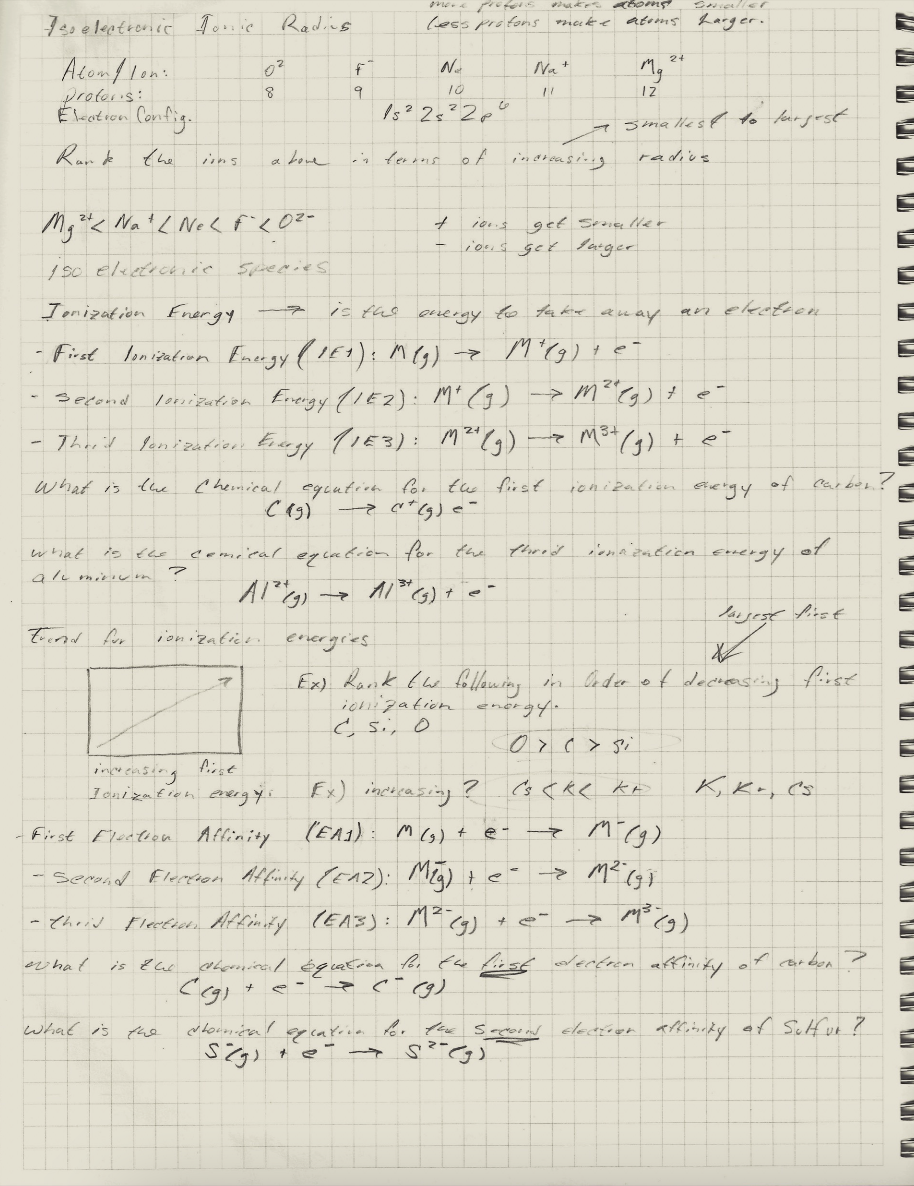 more protons makes atoms smaller
Isoelectronic Ionic Radius
Less protons make atoms Larger.
Atom/Ion: O² F⁻ Ne Na⁺ Mg²⁺
protons: 8 9 10 11 12
Electron Config. 1s² 2s² 2p⁶
smallest to largest
Rank the ions above in terms of increasing radius
Mg²⁺ < Na⁺ < Ne < F⁻ < O²⁻
+ ions get smaller
- ions get larger
Iso electronic species
Ionization Energy → is the energy to take away an electron
- First Ionization Energy (IE1): M(g) → M⁺(g) + e⁻
- Second Ionization Energy (IE2): M⁺(g) → M²⁺(g) + e⁻
- Thrid Ionization Energy (IE3): M²⁺(g) → M³⁺(g) + e⁻
What is the Chemical equation for the first ionization energy of carbon?
C(g) → C⁺(g) e⁻
What is the cemical equation for the thrid ionization energy of
aluminium?
Al²⁺(g) → Al³⁺(g) + e⁻
largest first
Trend for ionization energies
Ex) Rank the following in Order of decreasing first
ionization energy.
C, Si, O
O > C > Si
increasing first
Ionization energy.
Ex) increasing? Cs < K < Kr K, Kr, Cs
- First Electron Affinity (EA1): M(g) + e⁻ → M⁻(g)
- Second Electron Affinity (EA2): M⁻(g) + e⁻ → M²⁻(g)
- Thrid Electron Affinity (EA3): M²⁻(g) + e⁻ → M³⁻(g)
What is the chemical equation for the first electron affinity of carbon?
C(g) + e⁻ → C⁻(g)
What is the chemical equation for the second electron affinity of Sulfur?
S⁻(g) + e⁻ → S²⁻(g)